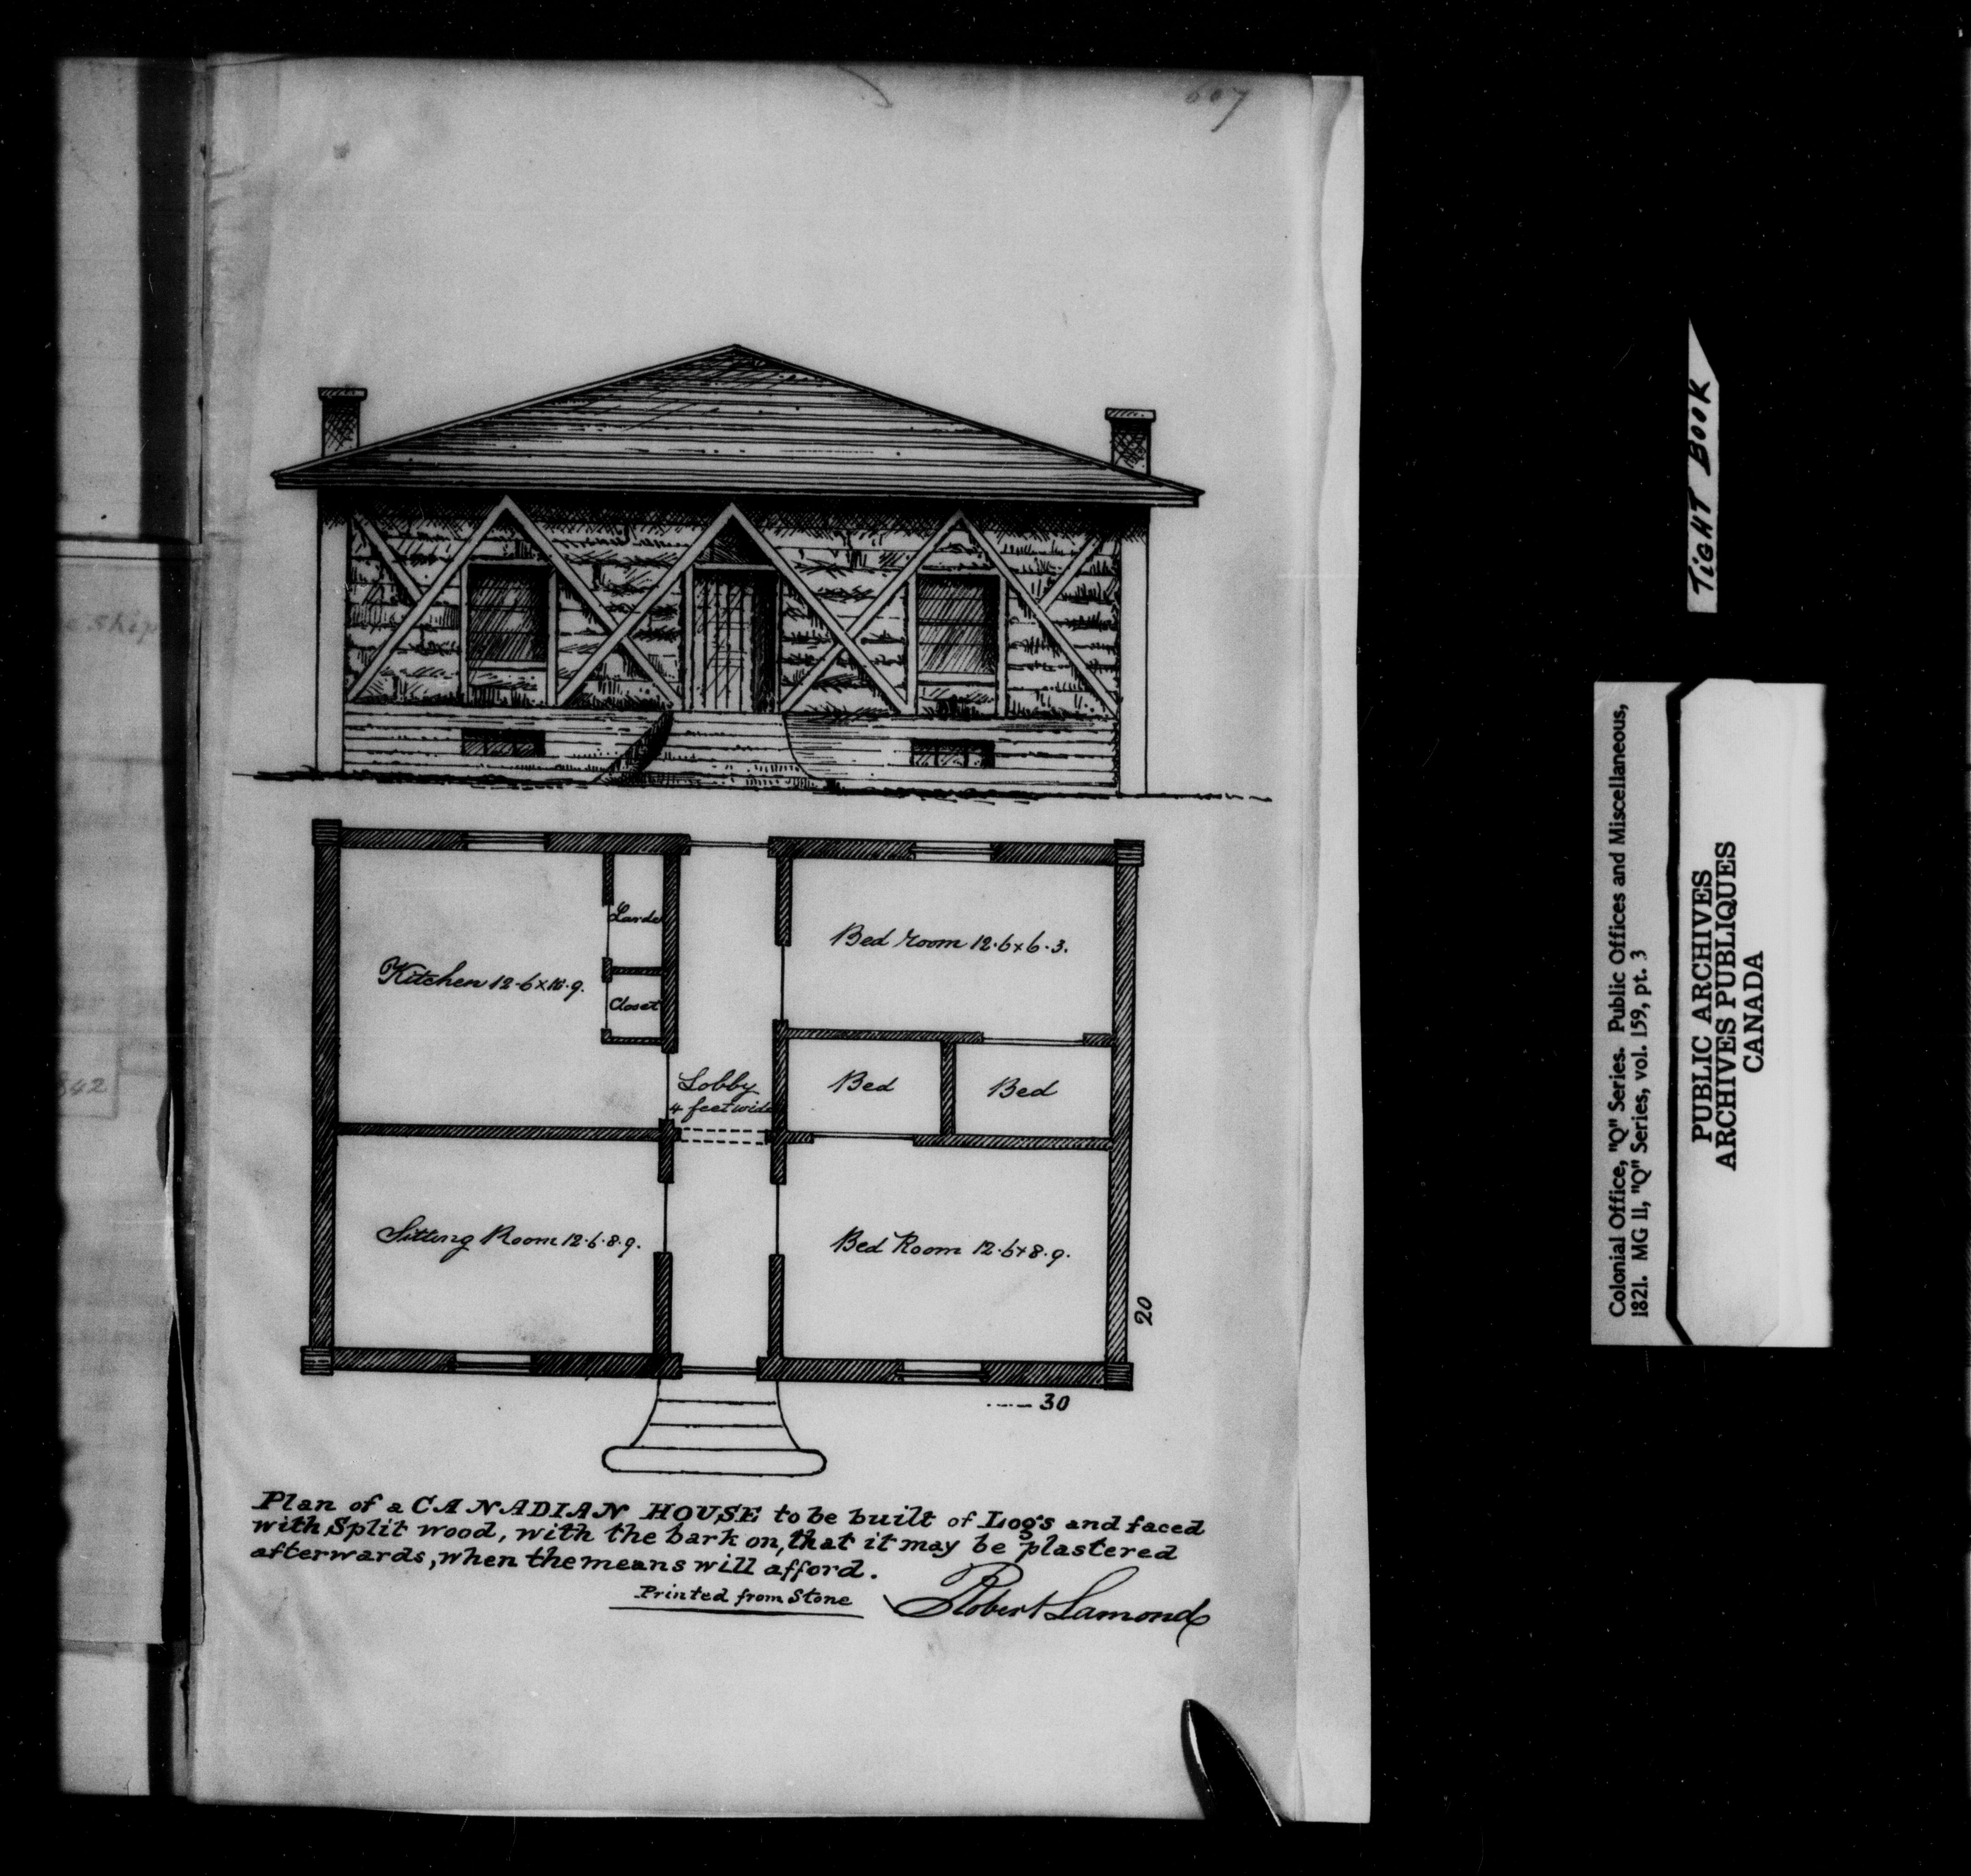 607
Larde
Bed room 12.6x6.3.
Kitchen 12.6x10.9.
Closet
Lobby
4 feet wide
Bed
Bed
Sitting Room 12.6.8.9.
Bed Room 12.6x8.9.
20
30
Plan of a CANADIAN HOUSE to be built of Logs and faced
with Split wood, with the bark on, that it may be plastered
afterwards, when the means will afford.
Printed from Stone
Robert Lamond
e Ship
842
TiGHT BOOK
Colonial Office, "Q" Series. Public Offices and Miscellaneous,
1821. MG 11, "Q" Series, vol. 159, pt. 3
PUBLIC ARCHIVES
ARCHIVES PUBLIQUES
CANADA